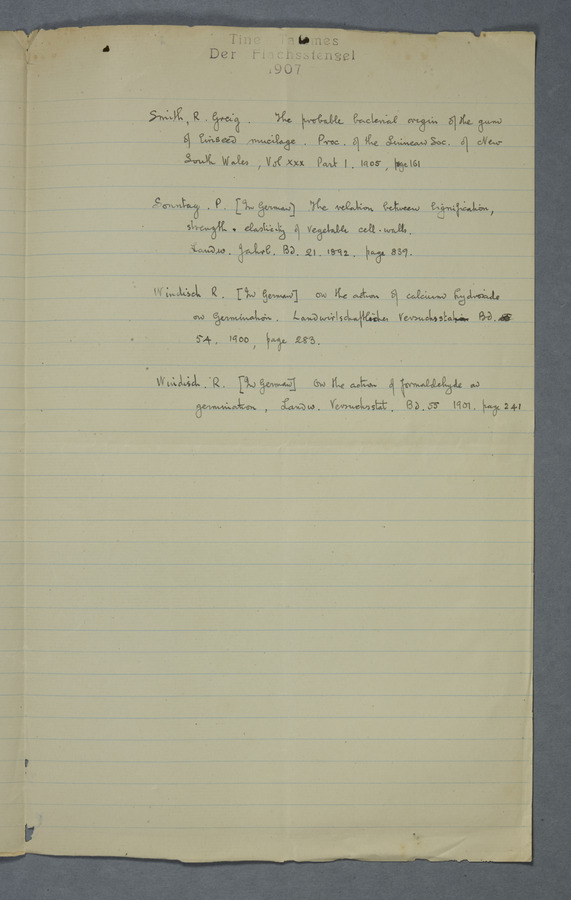 Tine Tammes
Der Flachsstengel
1907
Smith, R. Greig. The probable bacterial origin of the gum
of linseed mucilage. Proc. of the Linnean Soc. of New
South Wales, Vol xxx Part 1. 1905, page 161
Sonntag. P. [In German] The relation between lignification,
strength & elasticity of vegetable cell-walls.
Landw. Jahrb. Bd. 21. 1892. page 839.
Windisch R. [In German] On the action of calcium hydroxide
on germination. Landwirtschaftlichen Versuchsstation Bd.
54. 1900, page 283.
Windisch. R. [In German] On the action of formaldehyde on
germination, Landw. Versuchsstat. Bd. 55 1901. page 241